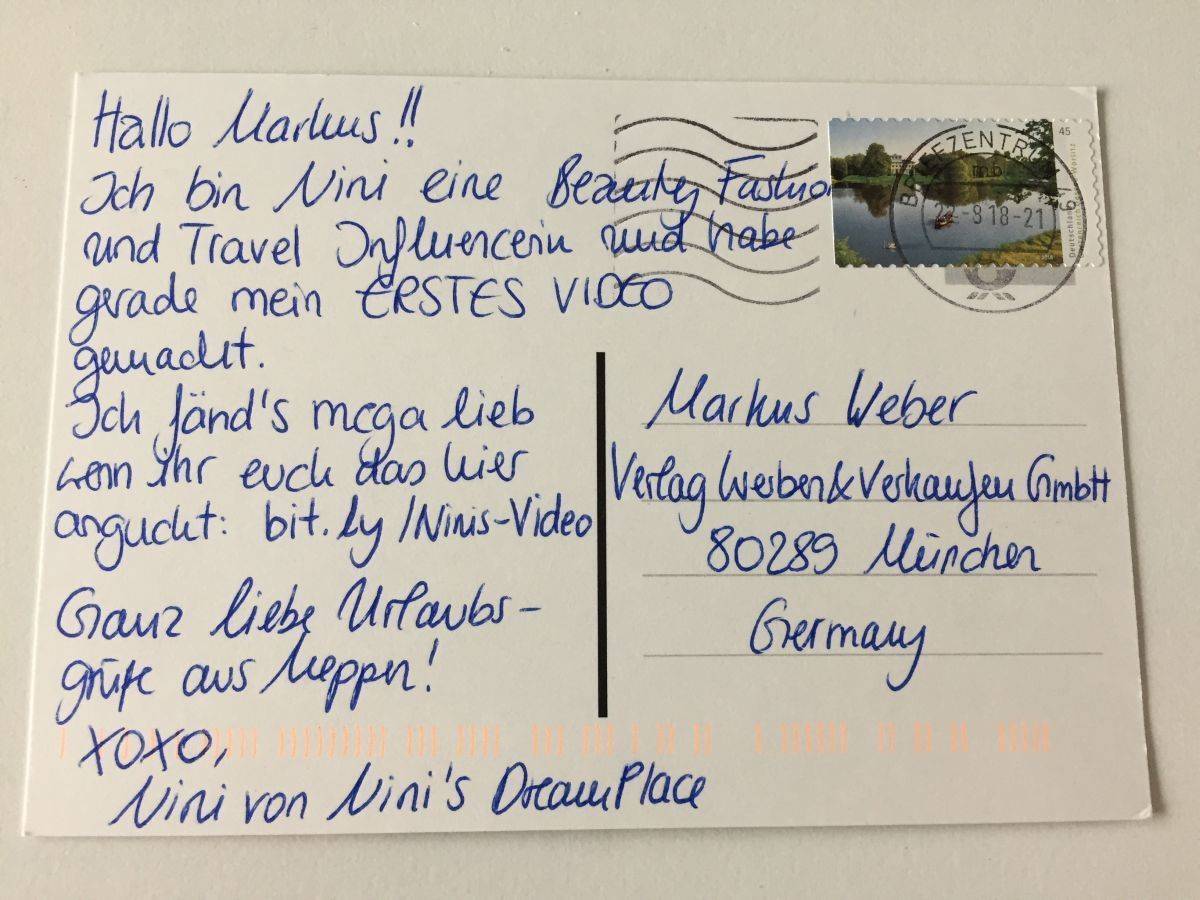 Hallo Markus!!
Ich bin Nini eine Beauty Fashion
und Travel Influencerin und habe
gerade mein ERSTES VIDEO
gemacht.
Ich fänd's mega lieb
wenn ihr euch das hier
anguckt: bit.ly/Ninis-Video
Ganz liebe Urlaubs-
grüße aus Meppen!
XOXO,
Nini von Nini's DreamPlace
45
Deutschland
BRIEFZENTRUM
-8.18-21
Markus Weber
Verlag Werben & Verkaufen GmbH
80289 München
Germany